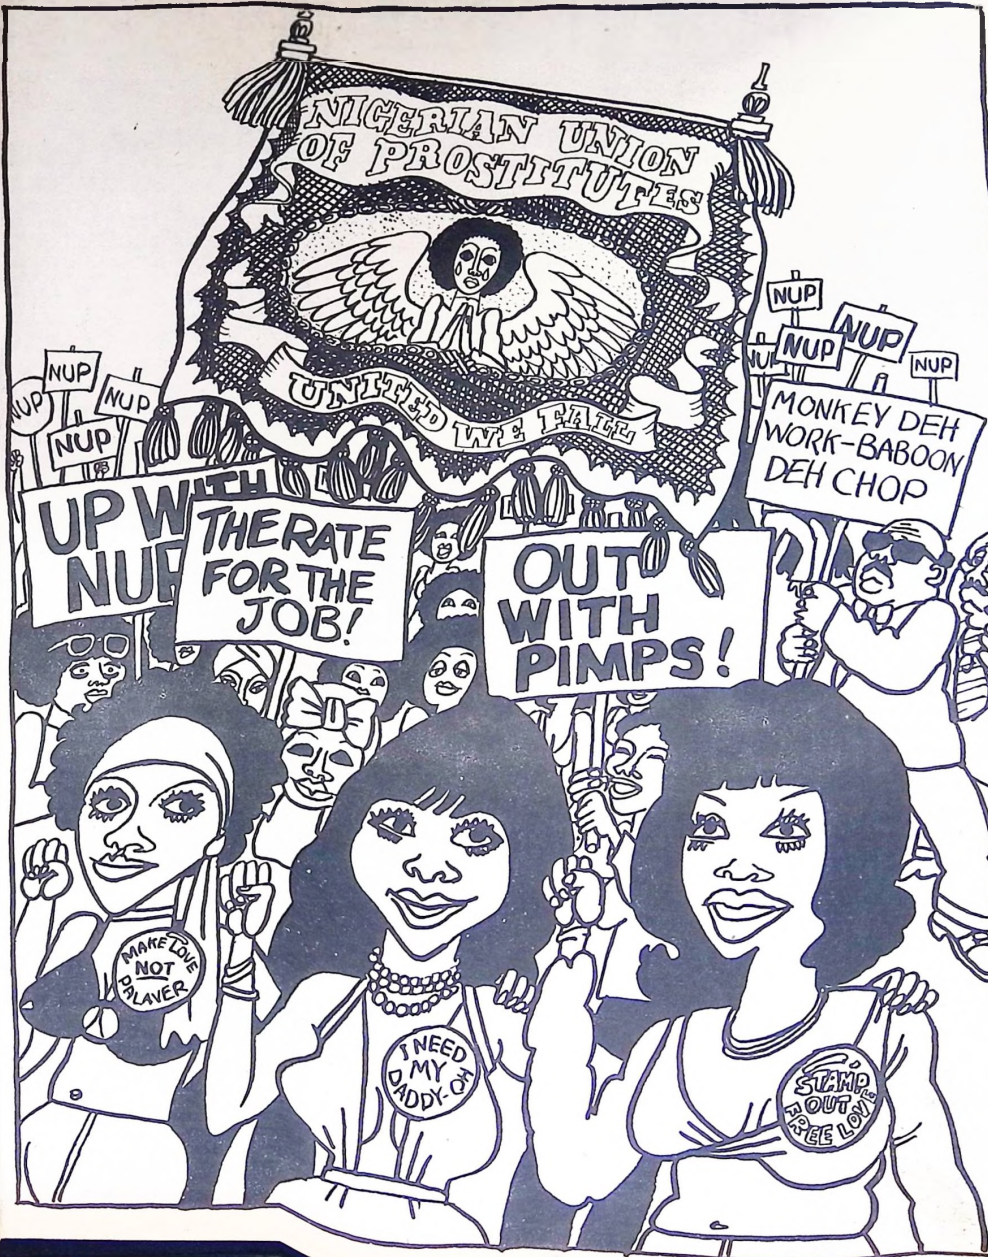 NIGERIAN UNION
OF PROSTITUTES
UNITED WE FALL
NUP
NUP
NUP
NUP
NUP
NUP
NUP
NUP
NUP
MONKEY DEH
WORK-BABOON
DEH CHOP
UP WITH
NUP
THE RATE
FOR THE
JOB!
OUT
WITH
PIMPS!
MAKE LOVE
NOT
PALAVER
I NEED
MY
DADDY-OH
STAMP
OUT
FREE LOVE